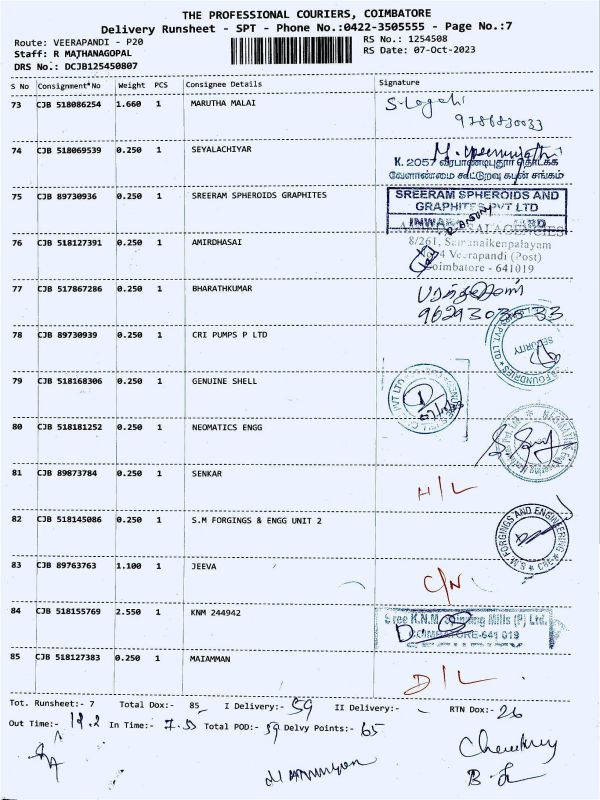 THE PROFESSIONAL COURIERS, COIMBATORE
Delivery Runsheet - SPT - Phone No.:0422-3505555 - Page No.:7
Route: VEERAPANDI - P20
RS No.: 1254508
Staff: R MATHANAGOPAL
RS Date: 07-Oct-2023
DRS No.: DCJB125450807
S No Consignment No Weight PCS Consignee Details Signature
73 CJB 518086254 1.660 1 MARUTHA MALAI
9788830033
74 CJB 518069539 0.250 1 SEYALACHIYAR
K. 2057 வீரபாண்டிபுதூர் தொடக்க
வேளாண்மை கூட்டுறவு கடன் சங்கம்
75 CJB 89730936 0.250 1 SREERAM SPHEROIDS GRAPHITES
SREERAM SPHEROIDS AND
GRAPHITES PVT LTD
76 CJB 518127391 0.250 1 AMIRDHASAI
8/261, Samanaikenpalayam
Veerapandi (Post)
Coimbatore - 641019
77 CJB 517867286 0.250 1 BHARATHKUMAR
78 CJB 89730939 0.250 1 CRI PUMPS P LTD
FOUNDRIES PVT. LTD
SECURITY
79 CJB 518168306 0.250 1 GENUINE SHELL
PVT LTD
80 CJB 518181252 0.250 1 NEOMATICS ENGG
81 CJB 89873784 0.250 1 SENKAR
H/L
82 CJB 518145086 0.250 1 S.M FORGINGS & ENGG UNIT 2
S.M FORGINGS AND ENGINEERING
CBE
83 CJB 89763763 1.100 1 JEEVA
C/N
84 CJB 518155769 2.550 1 KNM 244942
Sree K.N.M. Spinning Mills (P) Ltd.
COIMBATORE-641 019
SECURITY
85 CJB 518127383 0.250 1 MAIAMMAN
D/L
Tot. Runsheet:- 7 Total Dox:- 85 I Delivery:- 59 II Delivery:- RTN Dox:- 26
Out Time:- In Time:- Total POD:- 59 Delvy Points:- 65